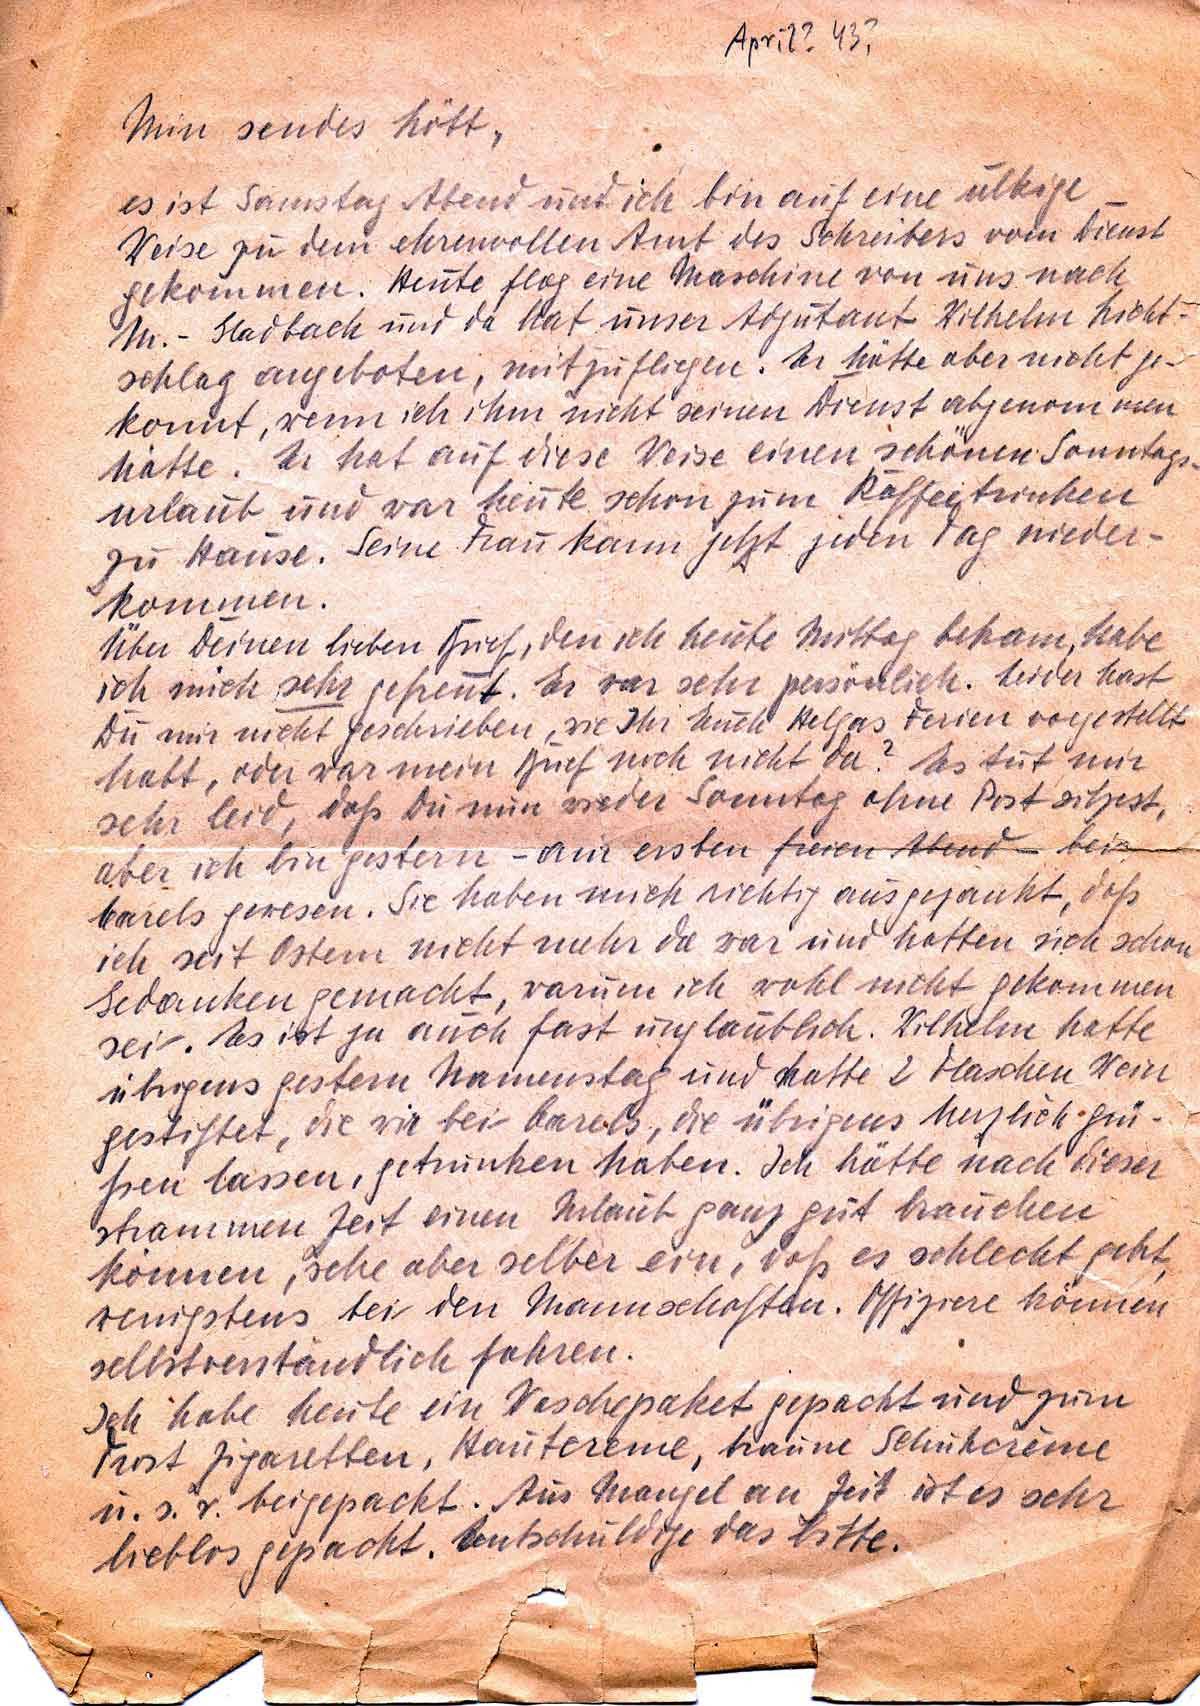 April? 43?
Min sendes Hött,
es ist Samstag Abend und ich bin auf eine ulkige
Weise zu dem ehrenvollen Amt des Schreibers vom Dienst
gekommen. Heute flog eine Maschine von uns nach
M.-Gladbach und da hat unser Adjutant Wilhelm Licht-
schlag angeboten, mitzufliegen. Er hätte aber nicht ge-
konnt, wenn ich ihm nicht seinen Dienst abgenommen
hätte. Er hat auf diese Weise einen schönen Sonntags-
urlaub und war heute schon zum Kaffeetrinken
zu Hause. Seine Frau kann jetzt jeden Tag nieder-
kommen.
Über Deinen lieben Brief, den ich heute Mittag bekam, habe
ich mich sehr gefreut. Er war sehr persönlich. Leider hast
Du mir nicht geschrieben, wie Ihr Euch Helgas Ferien vorgestellt
habt, oder war mein Brief noch nicht da? Es tut mir
sehr leid, daß Du nun wieder Sonntag ohne Post sitzest,
aber ich bin gestern – am ersten freien Abend – bei
gewesen. Sie haben mich richtig ausgezankt, daß
ich seit Ostern nicht mehr da war und hatten sich schon
Gedanken gemacht, warum ich wohl nicht gekommen
sei. Es ist ja auch fast unglaublich. Wilhelm hatte
übrigens gestern Namenstag und hatte 2 Flaschen Wein
gestiftet, die wir bei, die übrigens herzlich grü-
ßen lassen, getrunken haben. Ich hätte nach dieser
strammen Zeit einen Urlaub ganz gut brauchen
können, sehe aber selber ein, daß es schlecht geht,
wenigstens bei den Mannschaften. Offiziere können
selbstverständlich fahren.
Ich habe heute ein Wäschepaket gepackt und zum
Trost Zigaretten, Hautcreme, braune Schuhcrème
u. s. w. beigepackt. Aus Mangel an Zeit ist es sehr
lieblos gepackt. Entschuldige das bitte.